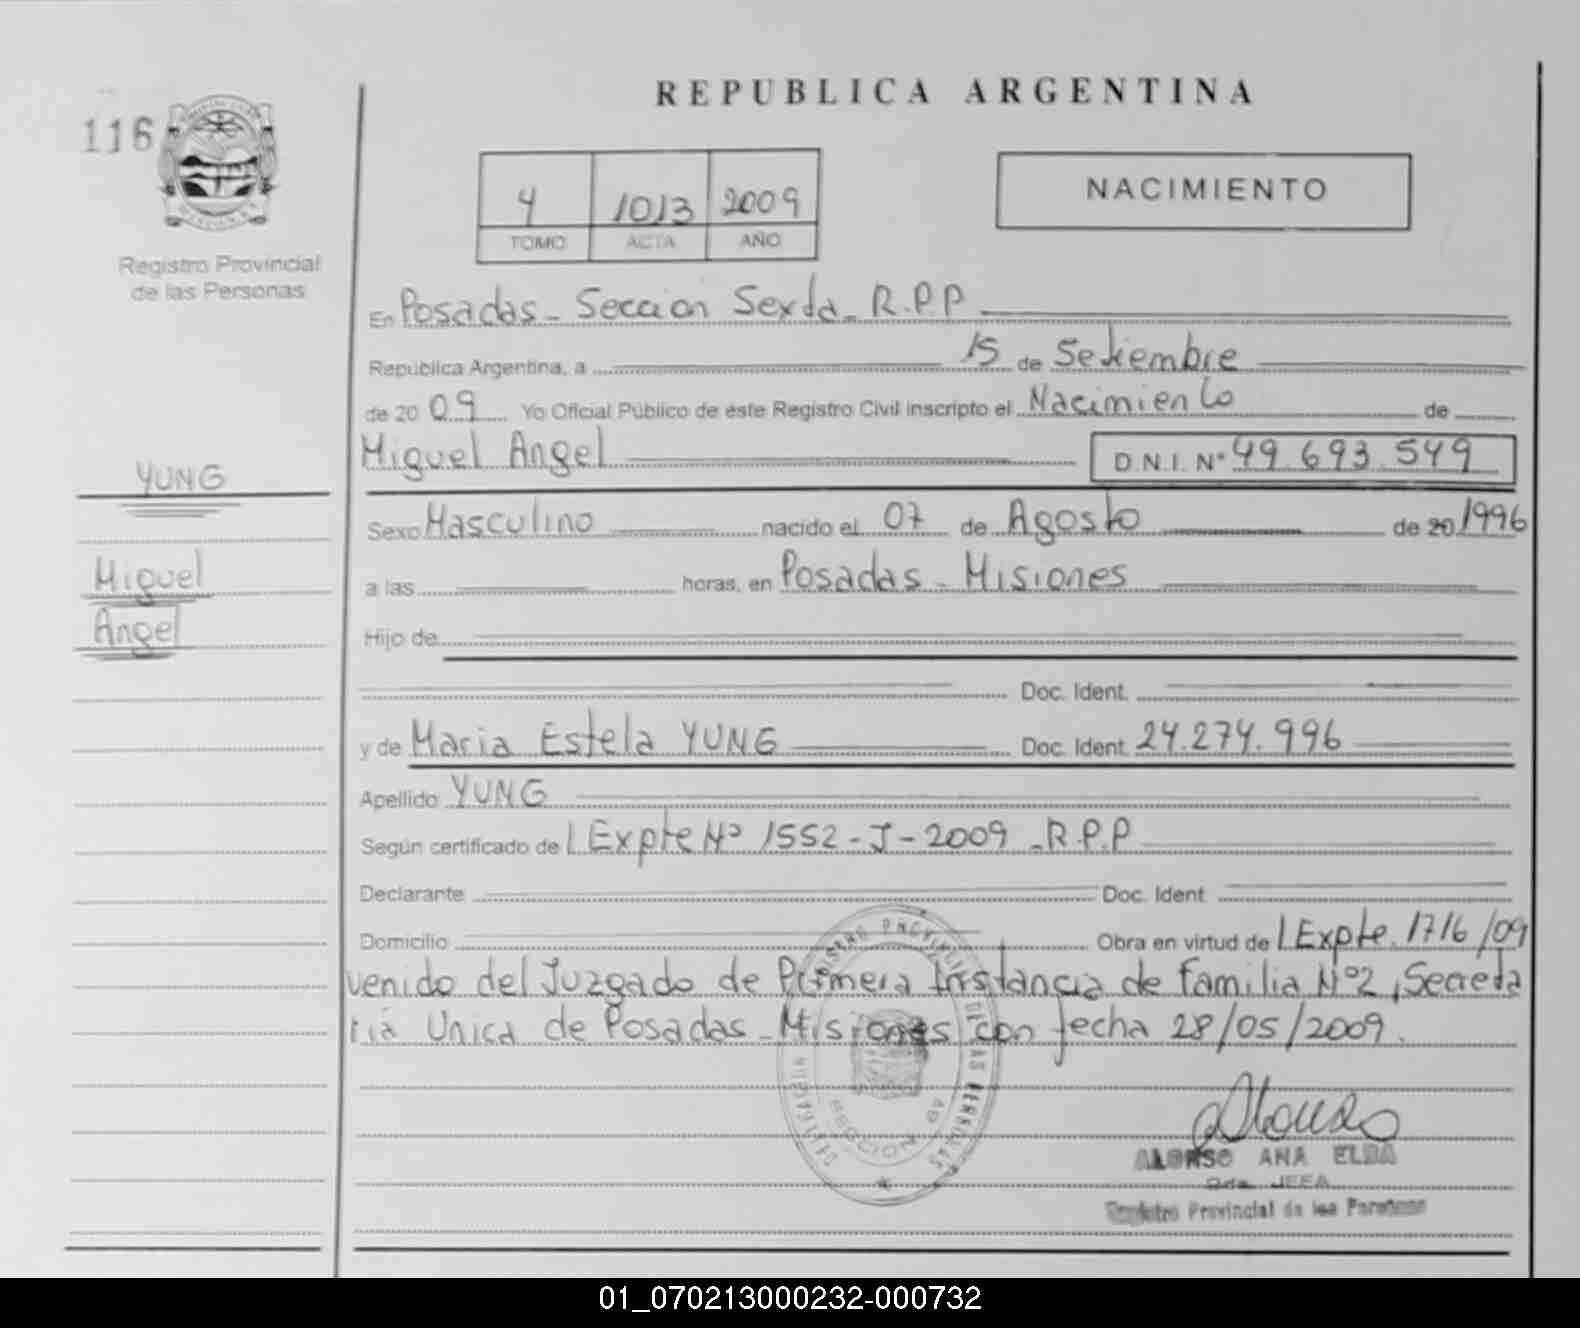 REPUBLICA ARGENTINA
116
4 1013 2009
TOMO ACTA AÑO
NACIMIENTO
Registro Provincial
de las Personas
En Posadas - Seccion Sexta - R.P.P
República Argentina, a 15 de Setiembre
de 20 09 Yo Oficial Público de éste Registro Civil inscripto el Nacimiento de
Miguel Angel D.N.I. Nº 49.693.549
YUNG
Miguel
Angel
Sexo Masculino nacido el 07 de Agosto de 20 1996
a las horas, en Posadas - Misiones
Hijo de
Doc. Ident.
y de Maria Estela YUNG Doc. Ident. 24.274.996
Apellido YUNG
Según certificado de l Expte Nº 1552-J-2009 - R.P.P
Declarante Doc. Ident
Domicilio Obra en virtud de l Expte. 1716/09
venido del Juzgado de Primera Instancia de Familia Nº2, Secreta
ria Unica de Posadas - Misiones con fecha 28/05/2009.
REGISTRO PROVINCIAL DE LAS PERSONAS
SECCION
ALONSO ANA ELBA
2da JEFA
Registro Provincial de las Personas
01_070213000232-000732